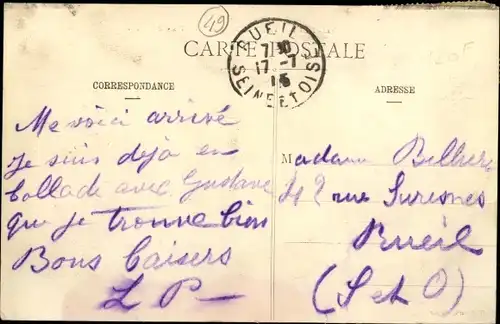 49
CARTE POSTALE
RUEIL
7 30
17 - 7
15
SEINE ET OISE
CORRESPONDANCE
ADRESSE
Me voici arrivé
je suis déjà en
ballade avec Gustave
que je trouve bien
Bons baisers
L P
Madame
42 rue Suresnes
Rueil
(S et O)